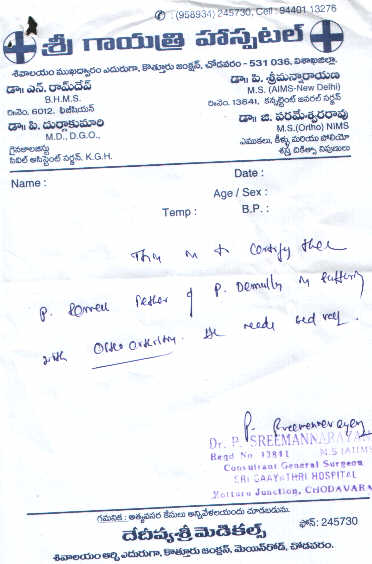 ✆ : (958934) 245730, Cell : 94401 13276
శ్రీ గాయత్రి హాస్పటల్
శివాలయం ముఖద్వారం ఎదురుగా, కొత్తూరు జంక్షన్, చోడవరం - 531 036, విశాఖజిల్లా.
డా॥ ఎన్. రామ్‌దేవ్
B.H.M.S.
రి.నెం. 6012, ఫిజీషియన్
డా॥ పి. దుర్గాకుమారి
M.D., D.G.O.,
గైనకాలజిస్టు
సివిల్ అసిస్టెంట్ సర్జన్, K.G.H.
డా॥ పి. శ్రీమన్నారాయణ
M.S. (AIMS-New Delhi)
రి.నెం. 13841, కన్సల్టెంట్ జనరల్ సర్జన్
డా॥ జి. పరమేశ్వరరావు
M.S.(Ortho) NIMS
ఎముకలు, కీళ్ళు మరియు పోలియో
శస్త్ర చికిత్సా నిపుణులు
Name :
Date :
Age / Sex :
Temp :
B.P. :
This is to certify that
P. father of P. Demully is suffering
with He needs bed rest.
P. Sreemannarayan
Dr. P. SREEMANNARAYAN
Regd No. 13841 M.S (AIIMS)
Consultant General Surgeon
SRI GAAYATHRI HOSPITAL
Kotturu Junction, CHODAVARA
గమనిక : అత్యవసర కేసులు అన్నివేళలయందు చూడబడును.
దేదీప్యశ్రీ మెడికల్స్
ఫోన్: 245730
శివాలయం ఆర్చి ఎదురుగా, కొత్తూరు జంక్షన్, మెయిన్‌రోడ్, చోడవరం.